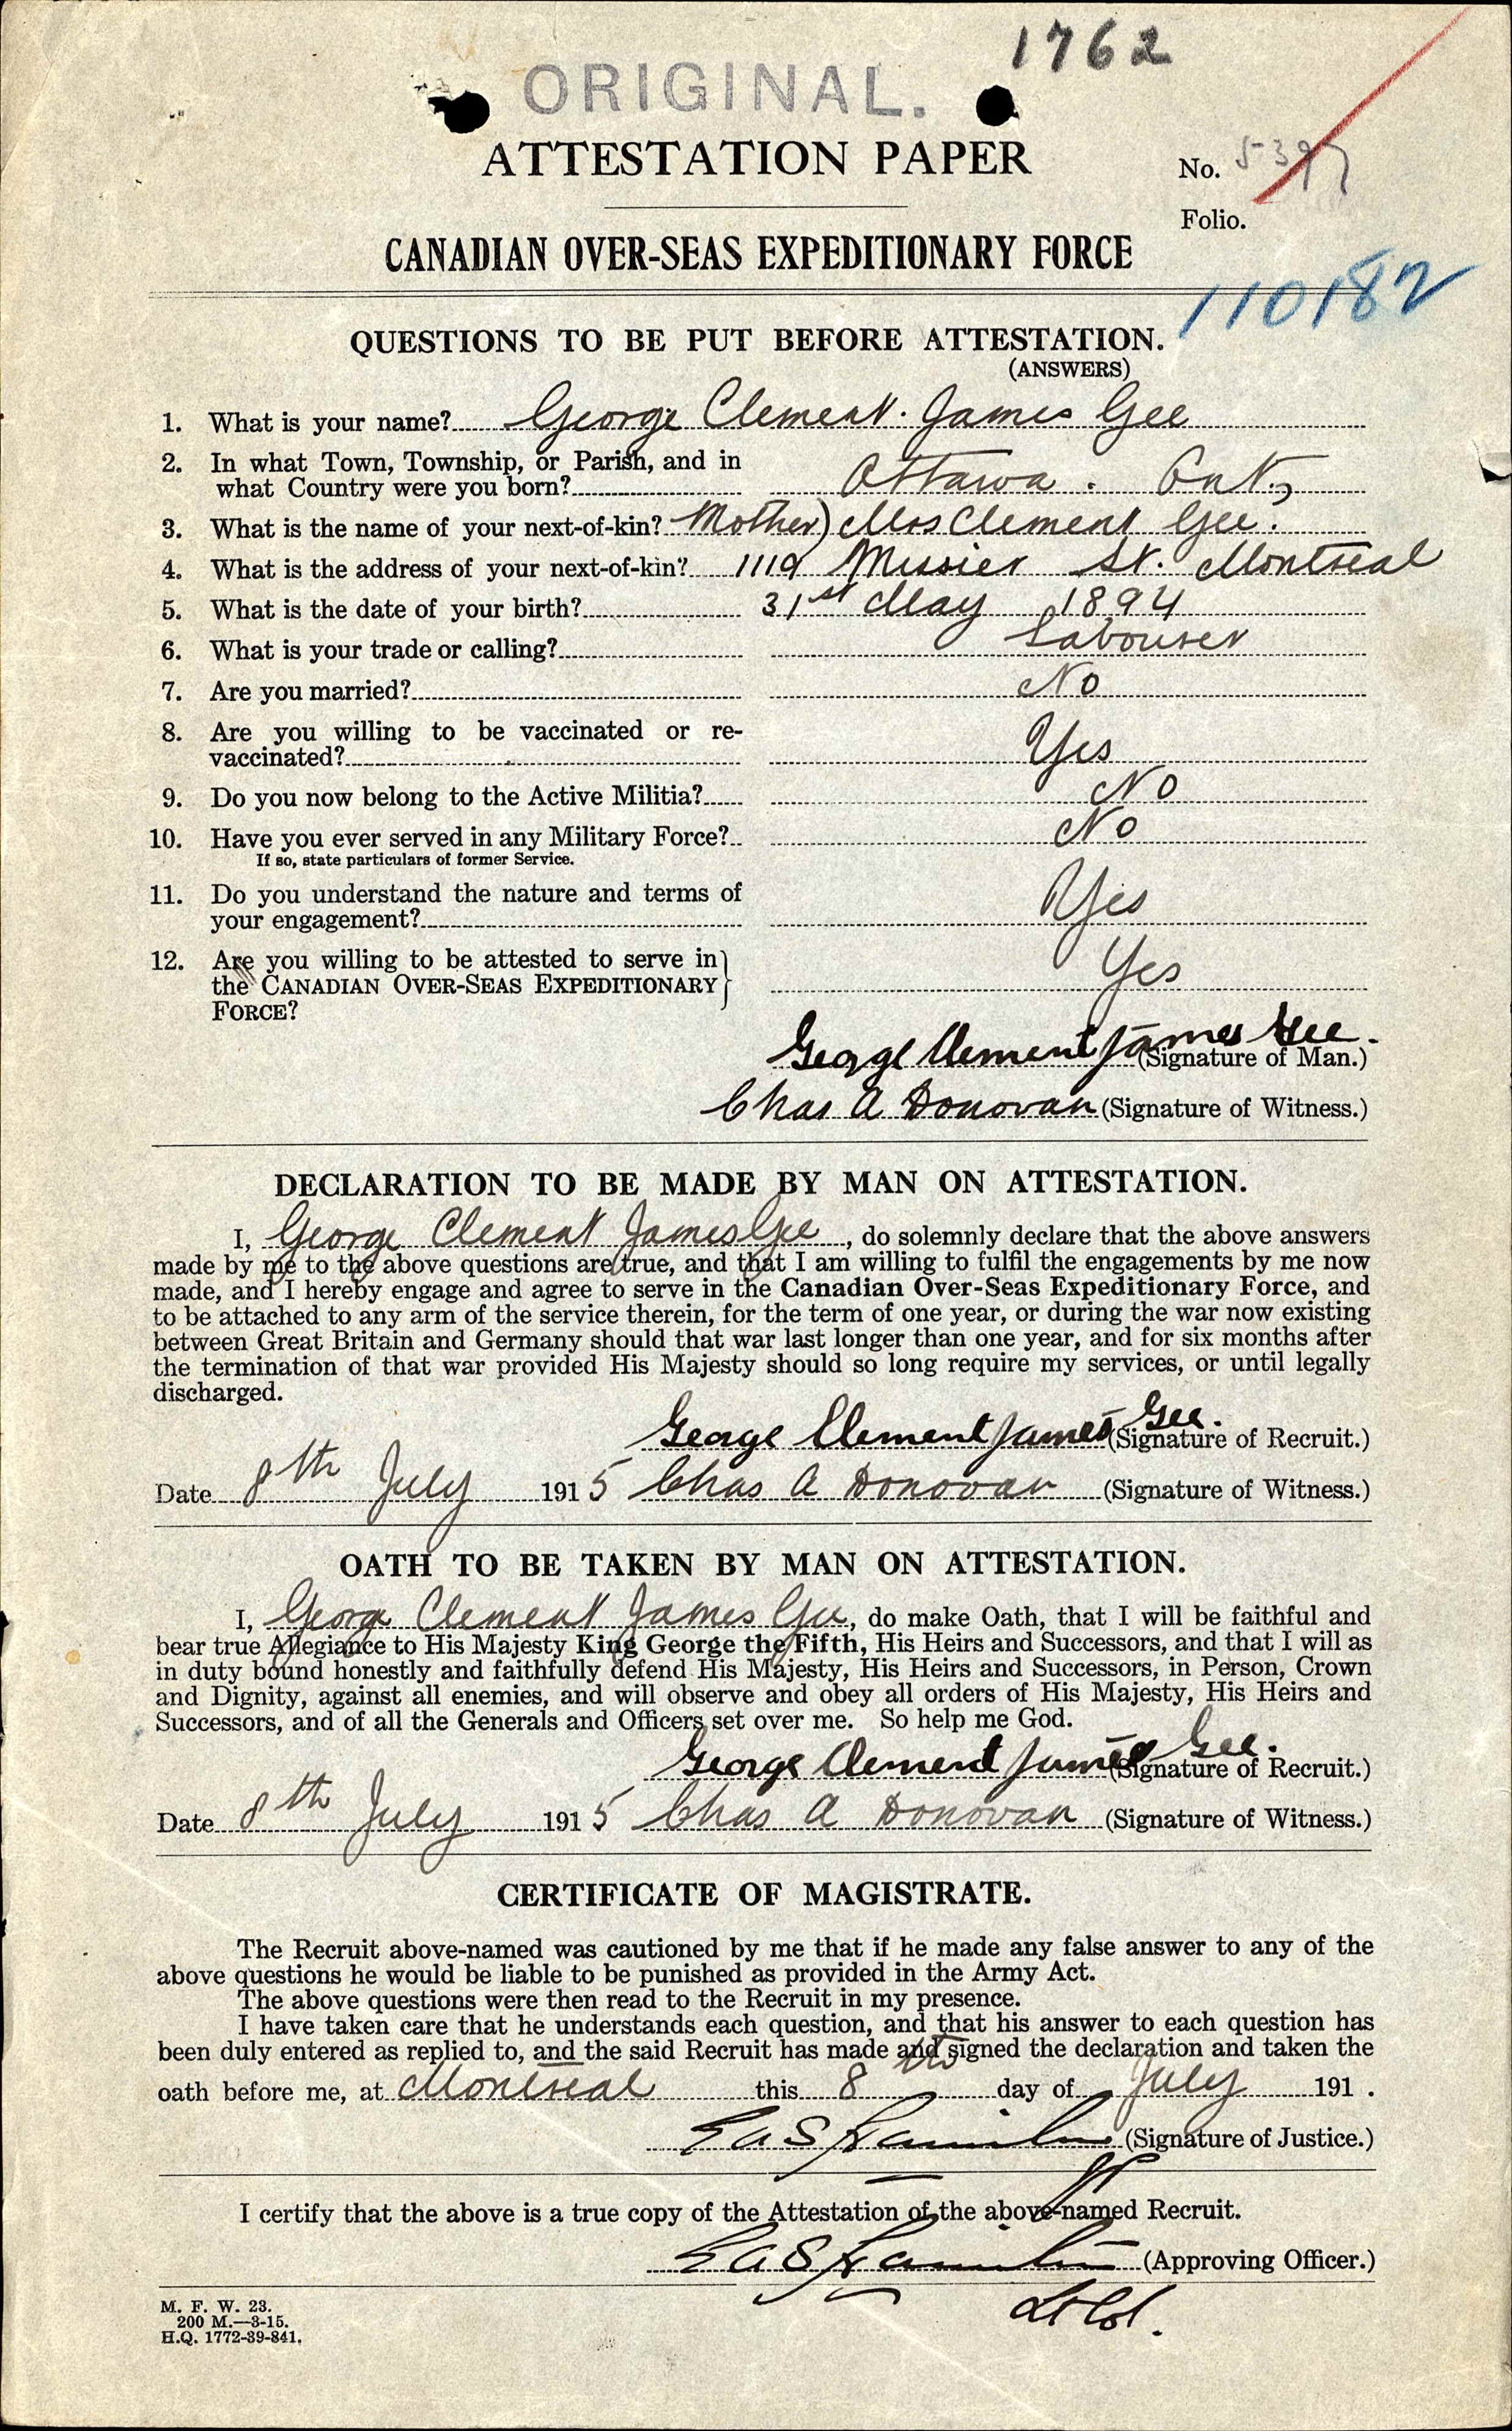 1762
ORIGINAL.
ATTESTATION PAPER
No. 5397
Folio.
CANADIAN OVER-SEAS EXPEDITIONARY FORCE
110182
QUESTIONS TO BE PUT BEFORE ATTESTATION.
(ANSWERS)
1. What is your name? George Clement James Gee
2. In what Town, Township, or Parish, and in
what Country were you born? Ottawa. Ont.,
3. What is the name of your next-of-kin? Mother) Mrs Clement Gee.
4. What is the address of your next-of-kin? 1119 Messier St. Montreal
5. What is the date of your birth? 31st May 1894
6. What is your trade or calling? Labourer
7. Are you married? No
8. Are you willing to be vaccinated or re-
vaccinated? Yes
9. Do you now belong to the Active Militia? No
10. Have you ever served in any Military Force? No
If so, state particulars of former Service.
11. Do you understand the nature and terms of
your engagement? Yes
12. Are you willing to be attested to serve in
the CANADIAN OVER-SEAS EXPEDITIONARY Yes
FORCE?
George Clement James Gee. (Signature of Man.)
Chas A Donovan (Signature of Witness.)
DECLARATION TO BE MADE BY MAN ON ATTESTATION.
I, George Clement James Gee, do solemnly declare that the above answers
made by me to the above questions are true, and that I am willing to fulfil the engagements by me now
made, and I hereby engage and agree to serve in the Canadian Over-Seas Expeditionary Force, and
to be attached to any arm of the service therein, for the term of one year, or during the war now existing
between Great Britain and Germany should that war last longer than one year, and for six months after
the termination of that war provided His Majesty should so long require my services, or until legally
discharged.
George Clement James Gee. (Signature of Recruit.)
Date 8th July 1915 Chas A Donovan (Signature of Witness.)
OATH TO BE TAKEN BY MAN ON ATTESTATION.
I, George Clement James Gee, do make Oath, that I will be faithful and
bear true Allegiance to His Majesty King George the Fifth, His Heirs and Successors, and that I will as
in duty bound honestly and faithfully defend His Majesty, His Heirs and Successors, in Person, Crown
and Dignity, against all enemies, and will observe and obey all orders of His Majesty, His Heirs and
Successors, and of all the Generals and Officers set over me. So help me God.
George Clement James Gee. (Signature of Recruit.)
Date 8th July 1915 Chas A Donovan (Signature of Witness.)
CERTIFICATE OF MAGISTRATE.
The Recruit above-named was cautioned by me that if he made any false answer to any of the
above questions he would be liable to be punished as provided in the Army Act.
The above questions were then read to the Recruit in my presence.
I have taken care that he understands each question, and that his answer to each question has
been duly entered as replied to, and the said Recruit has made and signed the declaration and taken the
oath before me, at Montreal this 8th day of July 191 .
(Signature of Justice.)
I certify that the above is a true copy of the Attestation of the above-named Recruit.
(Approving Officer.)
Lt Col.
M. F. W. 23.
200 M.—3-15.
H.Q. 1772-39-841.